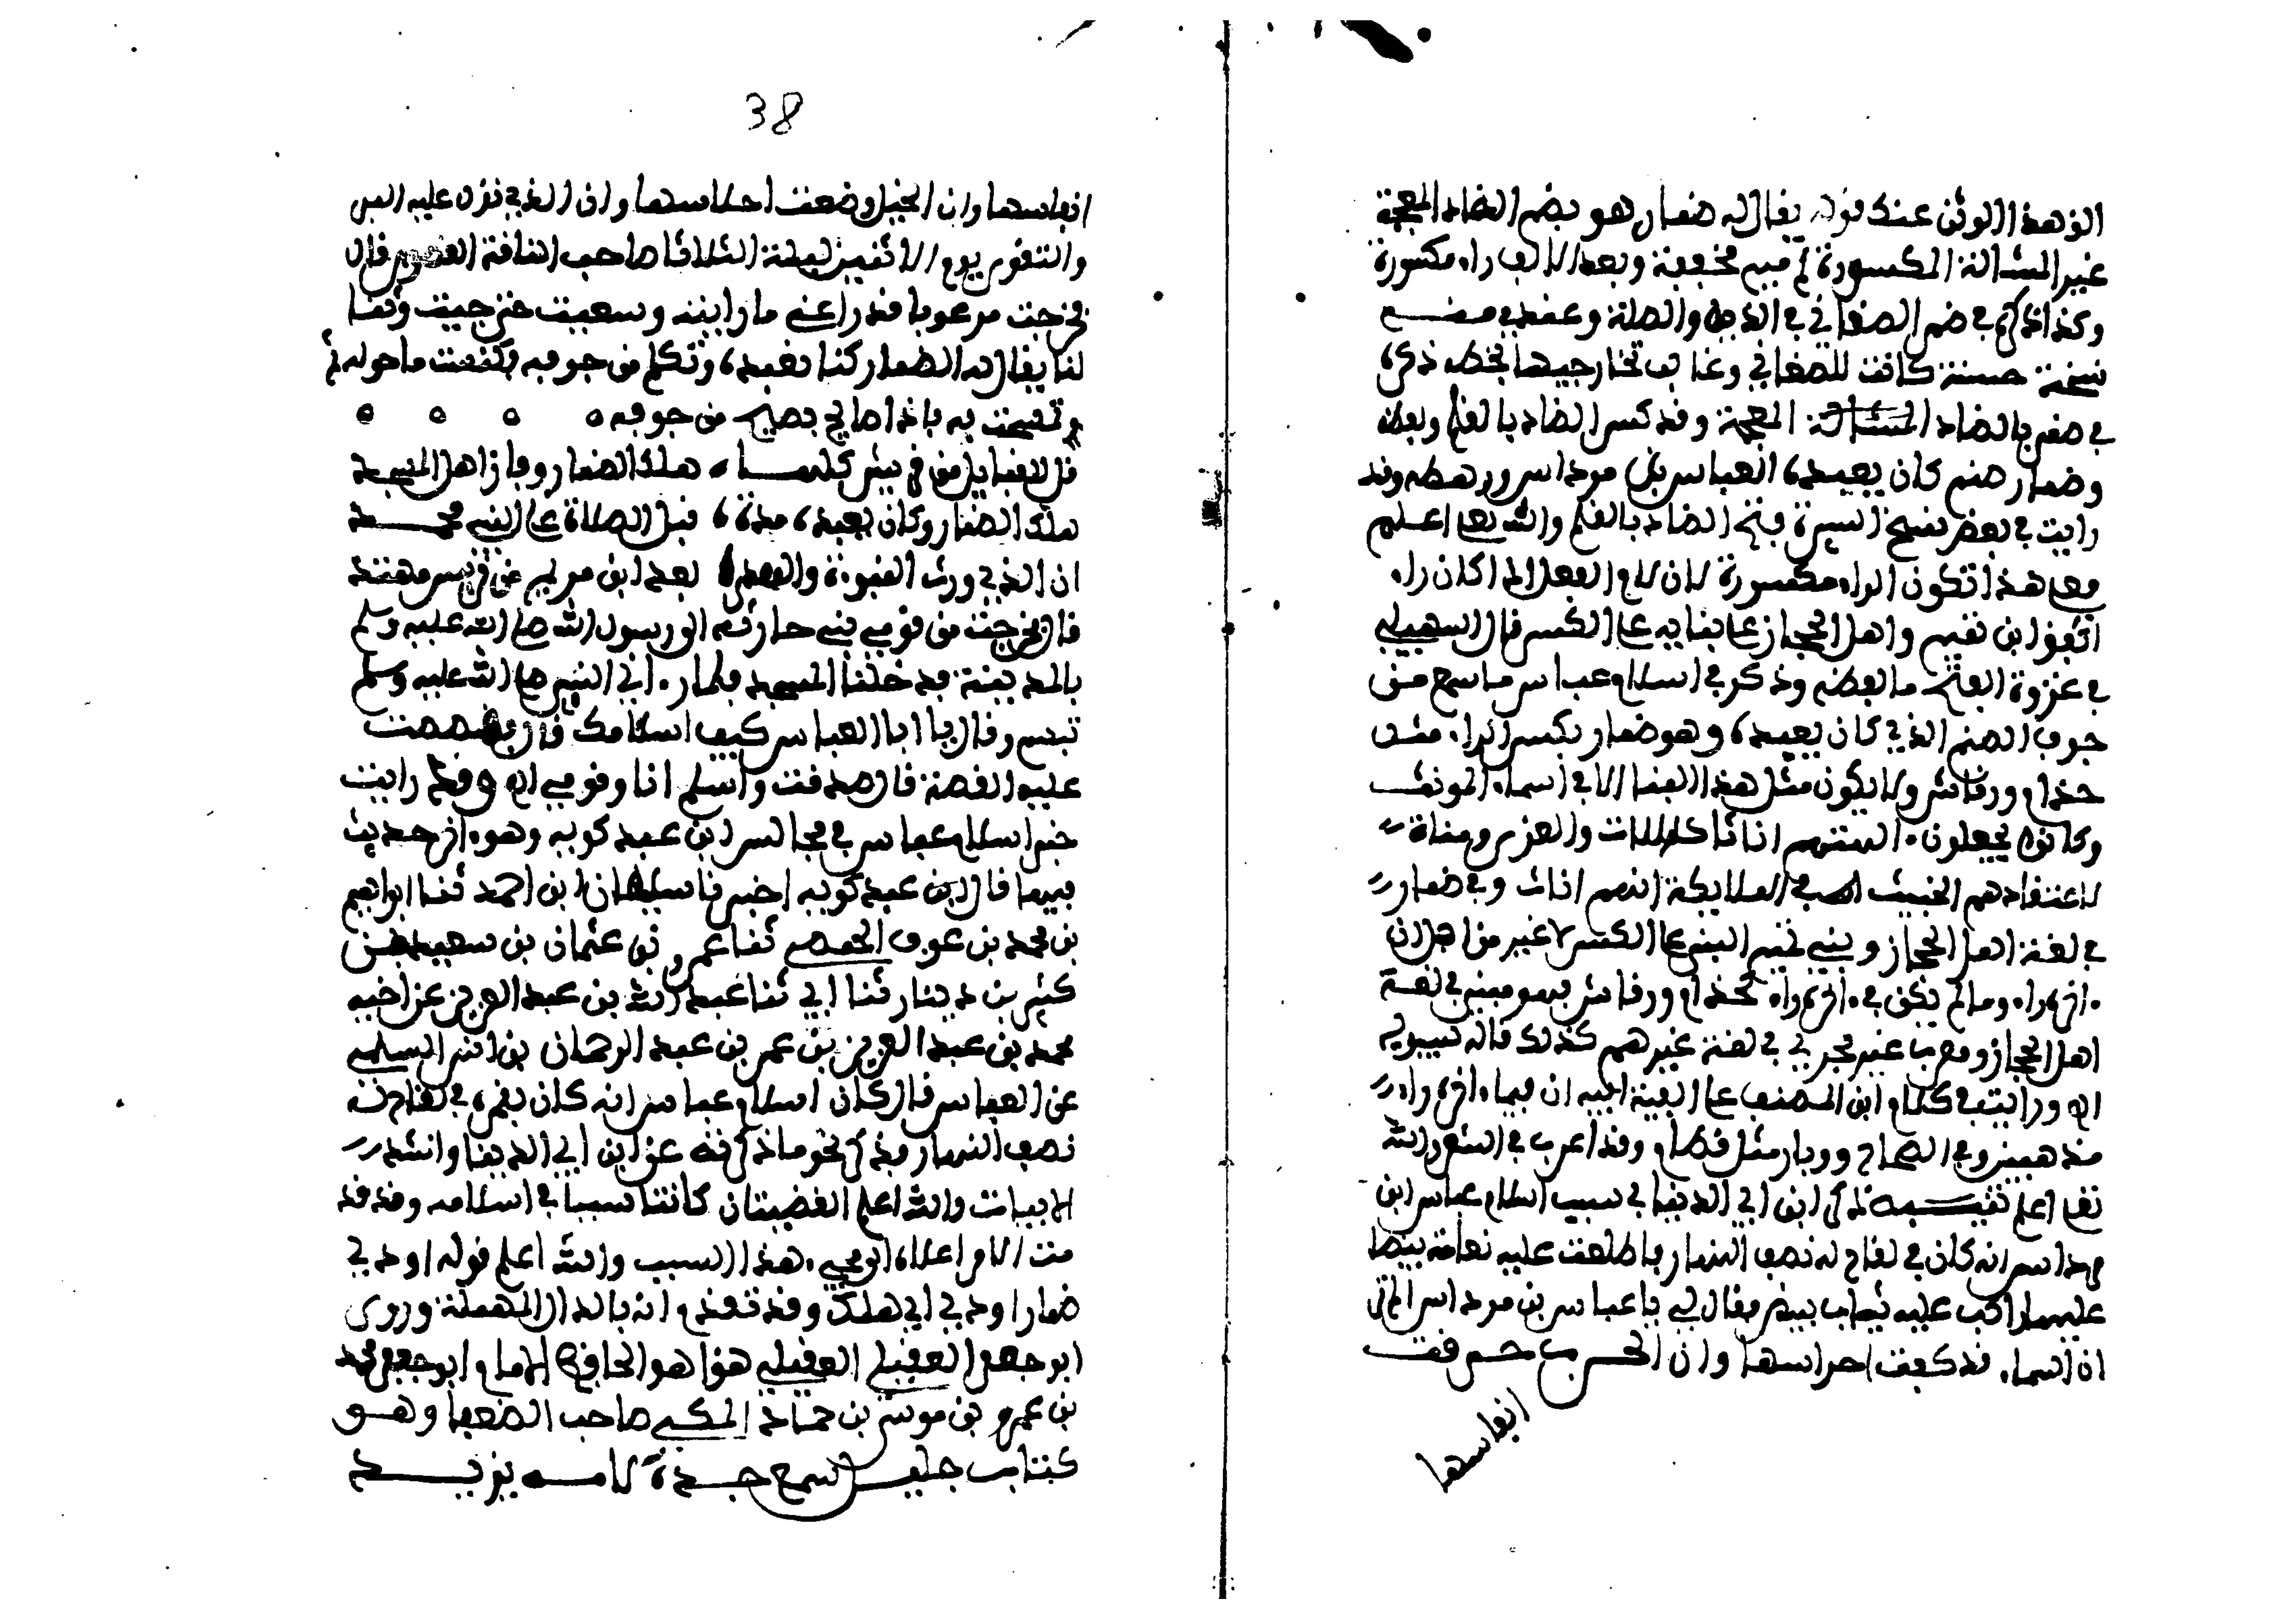 الى هذا الوثن عندك قوله يقال له ضمار هو بضم الضاد المعجمة
غير المشالة المكسورة ثم ميم مخففة وبعد الالف راء مكسورة
وكذا ذكره في ضم الصغاني في الذيل والصلة وعندي منه
نسخة حسنة كانت للصغاني وغالب تخارجيها بخطه ذكره
في ضمر بالضاد المعجمة وقد كسر الضاد بالقلم ولفظه
وضمار صنم كان يعبده العباس بن مرداس ورهطه وقد
رايت في بعض نسخ السيرة فتح الضاد بالقلم والله تعالى اعلم
فعلى هذا تكون الراء مكسورة لان لام الفعل اذا كان راء
اتفق ابن تميم واهل الحجاز على بنايه على الكسر قال السهيلي
في غزوة الفتح ما لفظه وذكر في اسلام عباس ما سمع من
جوف الصنم الذي كان يعبده وهو ضمار بكسر الراء مثل
حذام ورقاش ولا يكون مثل هذا البناء الا في اسماء المونث
وكانوا يجعلون الهتهم اناثا كاللات والعزى ومناة
لاعتقادهم الخبيث في الملايكة انهم اناث وفي ضمار
في لغة اهل الحجاز وبني تميم البناء على الكسر لا غير من اجل ان
اخره راء وما لم يكن في اخره راء كحذام ورقاش فهو مبني في لغة
اهل الحجاز ومعرب غير مجرى في لغة غيرهم كذلك قاله سيبويه
اه ورايت في كلام ابن المصنف على الفية ابيه ان فيما اخره راء
مذهبين وفي الصحاح ووبار مثل قطام وقد اعرب في الشعر والله
تعالى اعلم تنبيه ذكر ابن ابي الدنيا في سبب اسلام عباس ابن
مرداس انه كان في لقاح له نصف النهار فاطلعت عليه نعامة بيضا
عليها راكب عليه ثياب بيض فقال لي يا عباس بن مرداس الم تر
ان السماء قد كفت احراسها وان الحرب جرعت
انفاسها
38
انفاسها وان الخيل وضعت احلاسها وان الذي نزل عليه البر
والتقوى يوم الاثنين ليلة الثلاثا صاحب الناقة القصوى قال
فخرجت مرعوبا قد راعني ما رايته وسعيت حتى جيت وثنا
لنا يقال له الضمار كنا نعبده وتكلم من جوفه فكنست ما حوله ثم
وتمسحت به فاذا صايح يصيح من جوفه
قل للقبايل من قريش كلها هلك الضمار وفاز اهل المسجد
هلك الضمار وكان يعبد مدة قبل الصلاة على النبي محمد
ان الذي ورث النبوة والهدى بعد ابن مريم من قريش مهتد
قال فخرجت من قومي بني حارثة الى رسول الله صلى الله عليه وسلم
بالمدينة فدخلنا المسجد فلما راني النبي صلى الله عليه وسلم
تبسم وقال يا ابا العباس كيف اسلامك قال فقصصت
عليه القصة قال صدقت واسلم انا وقومي اه وقد رايت
خبر اسلام عباس في مجالس ابن عبد كويه وهو اخر حديث
فيها قال ابن عبد كويه اخبرنا سليمان ابن احمد ثنا ابراهيم
بن محمد بن عوف الحمصي ثنا عمرو بن عثمان بن سعيد بن
كثير بن دينار ثنا ابي ثنا عبد الله بن عبد العزيز عن اخيه
محمد بن عبد العزيز بن عمر بن عبد الرحمان بن انس السلمي
عن العباس قال كان اسلام عباس انه كان بغمرة في لقاح له
نصف النهار فذكر نحو ما ذكرته عن ابن ابي الدنيا وانشد
الابيات والله اعلم القضيتان كانتا سببا في اسلامه وقد قد
مت اول ... هذا السبب والله اعلم قوله اودى
ضمار اودى اي هلك وقد تقدم انه بالدال المهملة وروى
ابو جعفر العقيلي العقيلي هذا هو الحافظ الامام ابو جعفر محمد
بن عمرو بن موسى بن حماد المكي صاحب الضعفا وهو
كتاب جليل سمع جده لامه يزيد